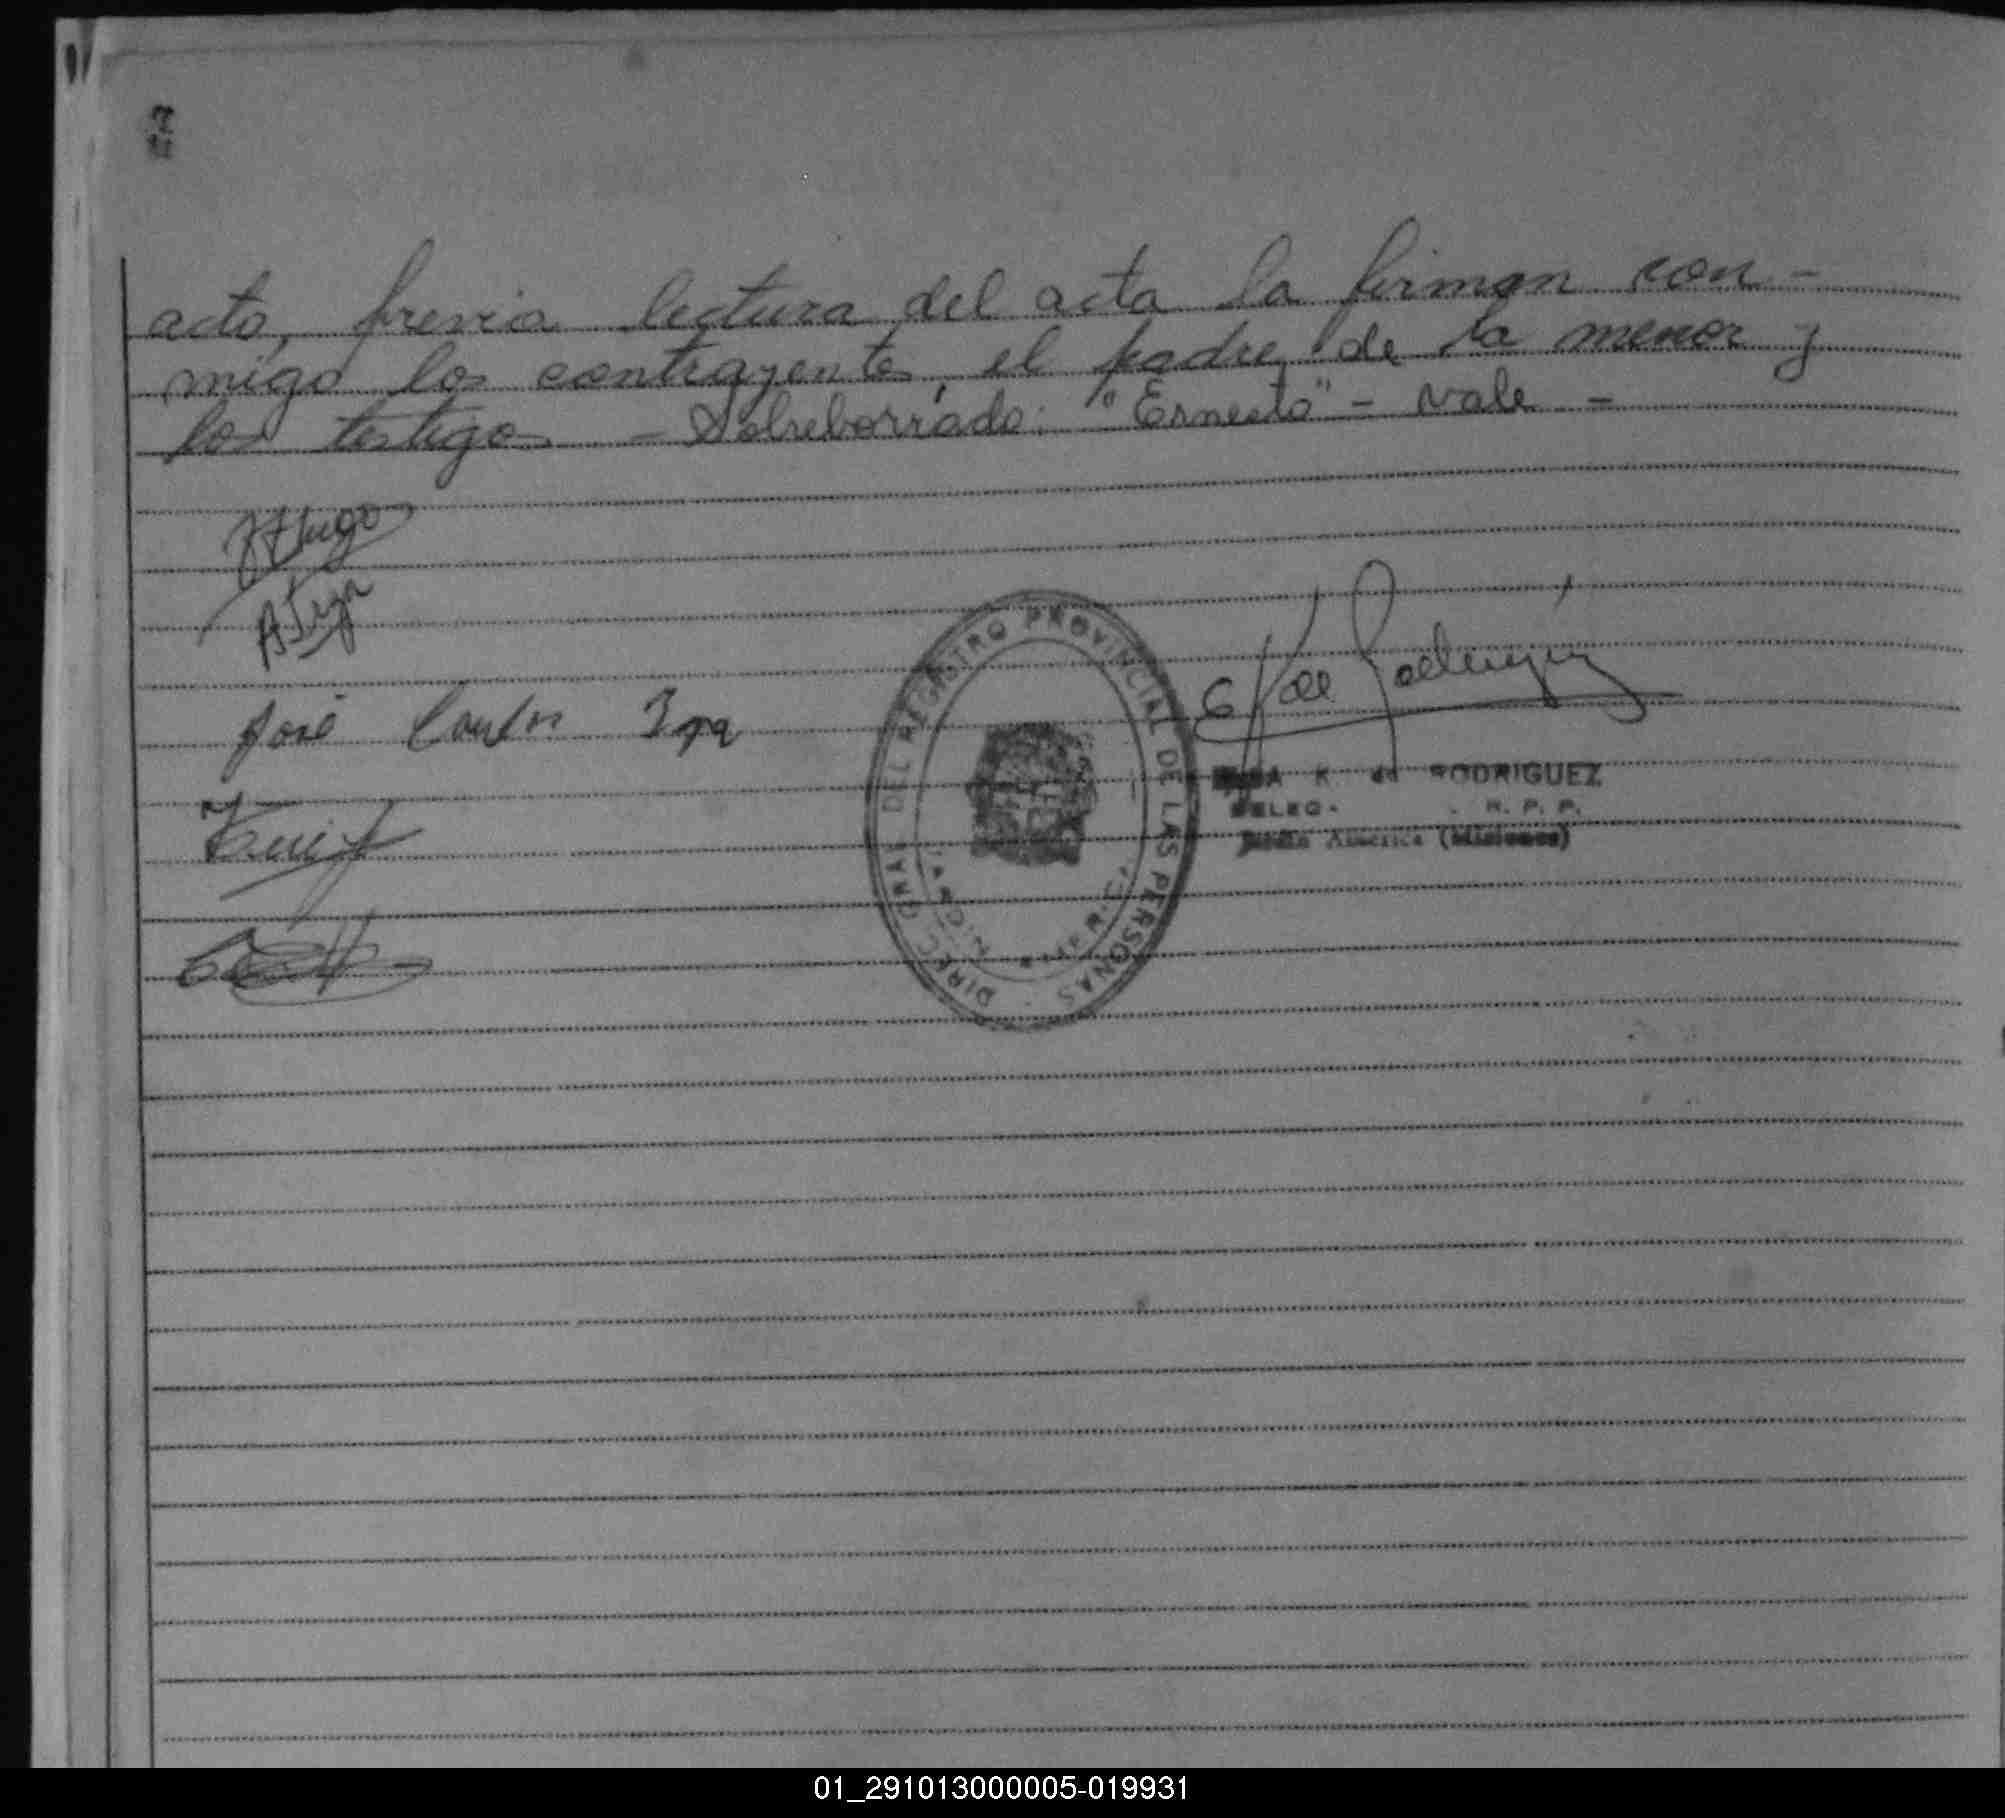 acto, previa lectura del acta la firman con-
migo los contrayentes, el padre de la menor y
los testigos - Sobreborrado: "Ernesto" - vale -
Hugo
José Carlos
E K de Rodriguez
DIREC. GRAL DEL REGISTRO PROVINCIAL DE LAS PERSONAS
K. de RODRIGUEZ
R. P. P.
Jardín América (Misiones)
01_291013000005-019931